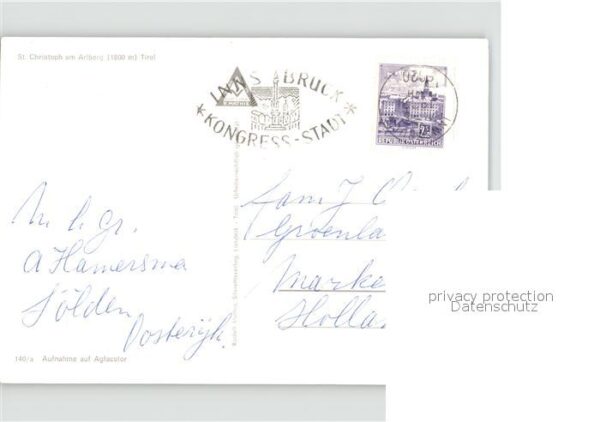 St. Christoph am Arlberg (1800 m) Tirol
INNSBRUCK
* KONGRESS-STADT *
REPUBLIK ÖSTERREICH
M. h. gr.
A Hamersma
Sölden
Oosterijk.
Fam J
Groenla
Marke
Holla
privacy protection
Datenschutz
140/a Aufnahme auf Agfacolor